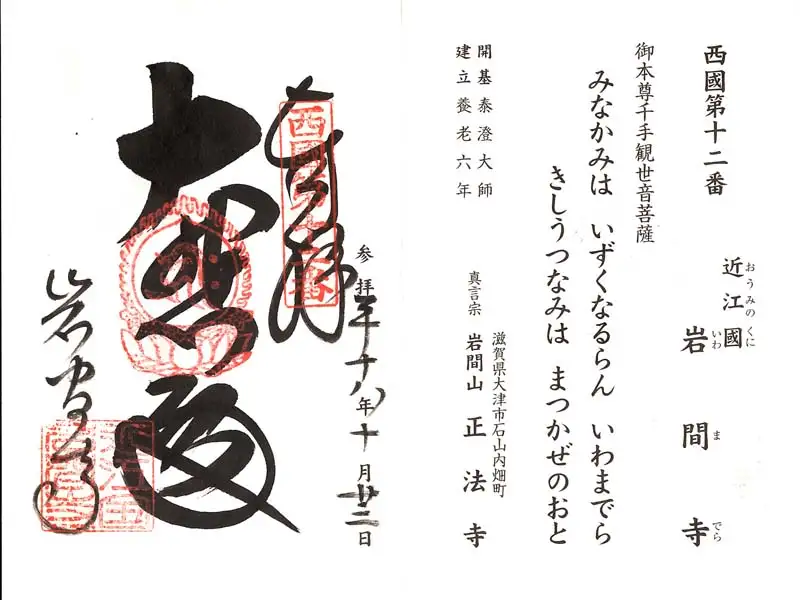 西國第十二番
おうみのくに
近江國
いわまでら
岩間寺
御本尊千手観世音菩薩
みなかみは いずくなるらん いわまでら
きしうつなみは まつかぜのおと
開基泰澄大師
建立養老六年
滋賀県大津市石山内畑町
真言宗 岩間山 正法寺
参拝平十八年十月廿三日
奉拝
西國第十二番
大悲殿
岩間寺